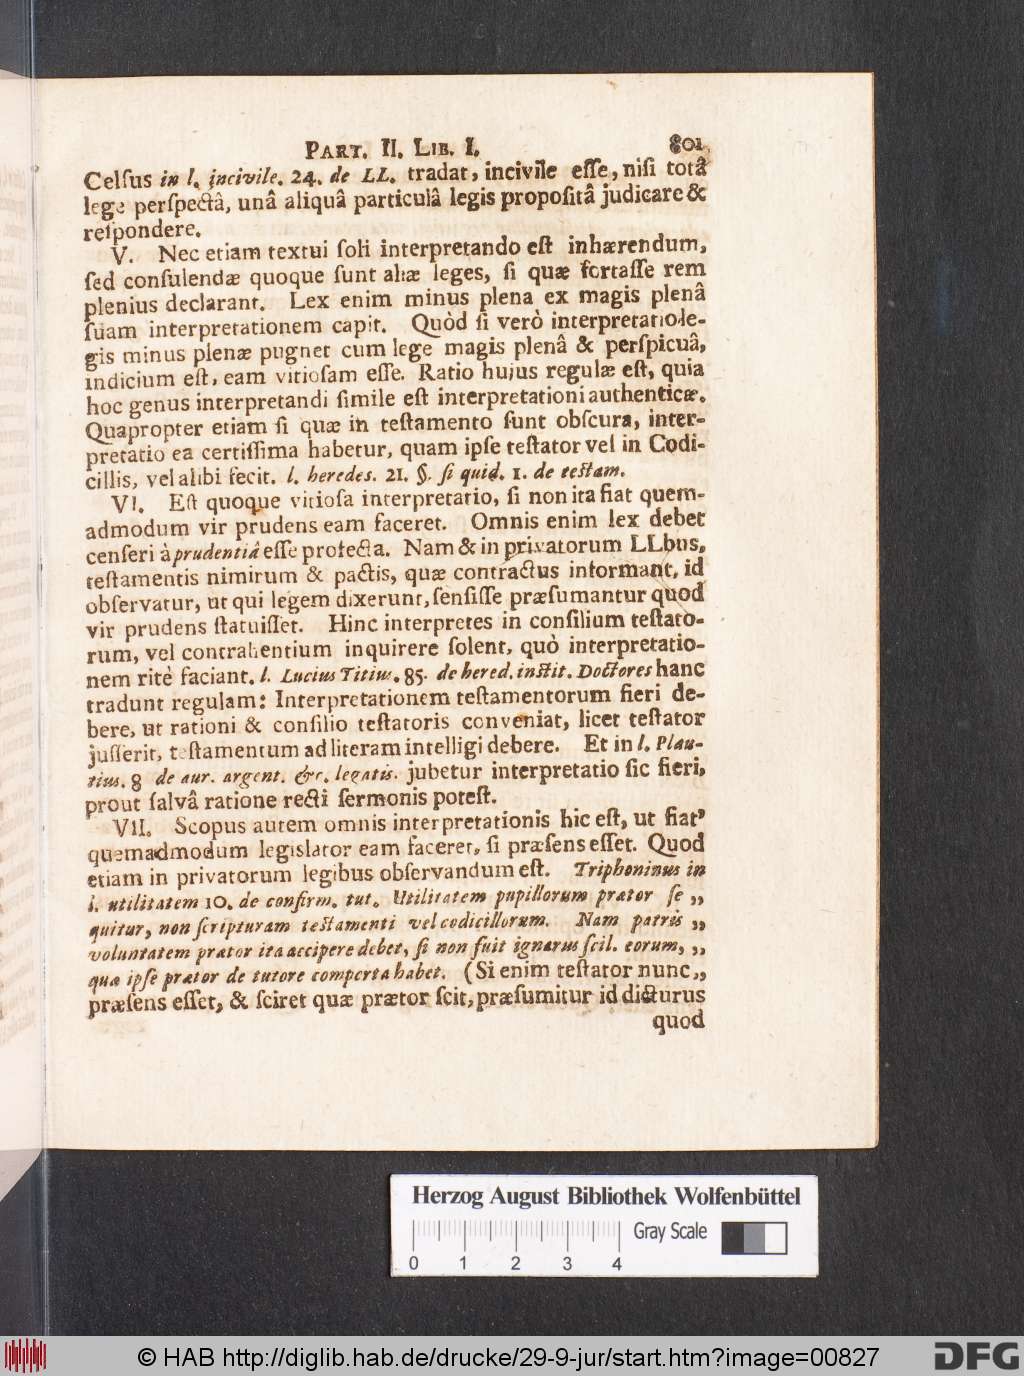 PART. II. LIB. I. 801
Celſus in l. incivile. 24. de LL. tradat, incivile eſſe, niſi totâ
lege perſpectâ, unâ aliquâ particulâ legis propoſitâ judicare &
reſpondere.
V. Nec etiam textui ſoli interpretando eſt inhærendum,
ſed conſulendæ quoque ſunt aliæ leges, ſi quæ fortaſſe rem
plenius declarant. Lex enim minus plena ex magis plenâ
ſuam interpretationem capit. Quòd ſi verò interpretatio le-
gis minus plenæ pugnet cum lege magis plenâ & perſpicuâ,
indicium eſt, eam vitioſam eſſe. Ratio hujus regulæ eſt, quia
hoc genus interpretandi ſimile eſt interpretationi authenticæ.
Quapropter etiam ſi quæ in teſtamento ſunt obſcura, inter-
pretatio ea certiſſima habetur, quam ipſe teſtator vel in Codi-
cillis, vel alibi fecit. l. heredes. 21. §. ſi quid. 1. de teſtam.
VI. Eſt quoque vitioſa interpretatio, ſi non ita fiat quem-
admodum vir prudens eam faceret. Omnis enim lex debet
cenſeri à prudentiâ eſſe profecta. Nam & in privatorum LLbus,
teſtamentis nimirum & pactis, quæ contractus informant, id
obſervatur, ut qui legem dixerunt, ſenſiſſe præſumantur quod
vir prudens ſtatuiſſet. Hinc interpretes in conſilium teſtato-
rum, vel contrahentium inquirere ſolent, quò interpretatio-
nem ritè faciant. l. Lucius Titius. 85. de hered. inſtit. Doctores hanc
tradunt regulam: Interpretationem teſtamentorum fieri de-
bere, ut rationi & conſilio teſtatoris conveniat, licet teſtator
juſſerit, teſtamentum ad literam intelligi debere. Et in l. Plau-
tius. 8 de aur. argent. &c. legatis. jubetur interpretatio ſic fieri,
prout ſalvâ ratione recti ſermonis poteſt.
VII. Scopus autem omnis interpretationis hic eſt, ut fiat,
quemadmodum legislator eam faceret, ſi præſens eſſet. Quod
etiam in privatorum legibus obſervandum eſt. Triphoninus in
l. utilitatem 10. de confirm. tut. Utilitatem pupillorum prætor ſe „
quitur, non ſcripturam teſtamenti vel codicillorum. Nam patris „
voluntatem prætor ita accipere debet, ſi non fuit ignarus ſcil. eorum, „
quæ ipſe prætor de tutore comperta habet. (Si enim teſtator nunc „
præſens eſſet, & ſciret quæ prætor ſcit, præſumitur id dicturus
quod
Herzog August Bibliothek Wolfenbüttel
Gray Scale
0 1 2 3 4
© HAB http://diglib.hab.de/drucke/29-9-jur/start.htm?image=00827
DFG